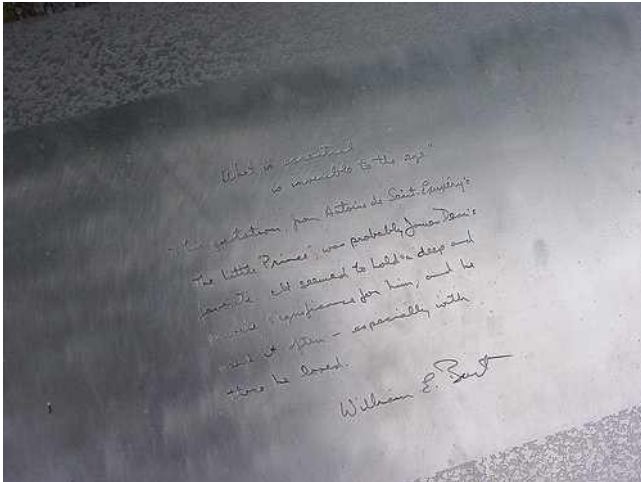 What is essential
is invisible to the eye"
quotation, from Antoine de Saint-Exupéry's
The Little Prince, was probably James Dean's
favorite. It seemed to hold a deep and
significance for him, and he
used it often – especially with
those he loved.
William E. Bast